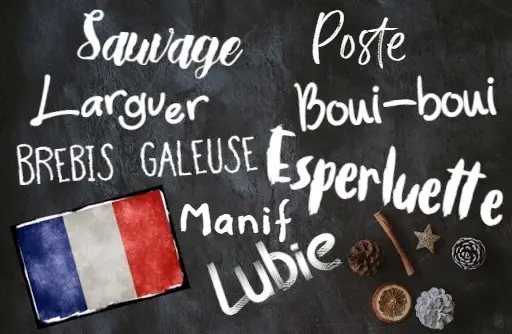 Sauvage
Poste
Larguer
Boui-boui
BREBIS GALEUSE
Esperluette
Manif
Lubie